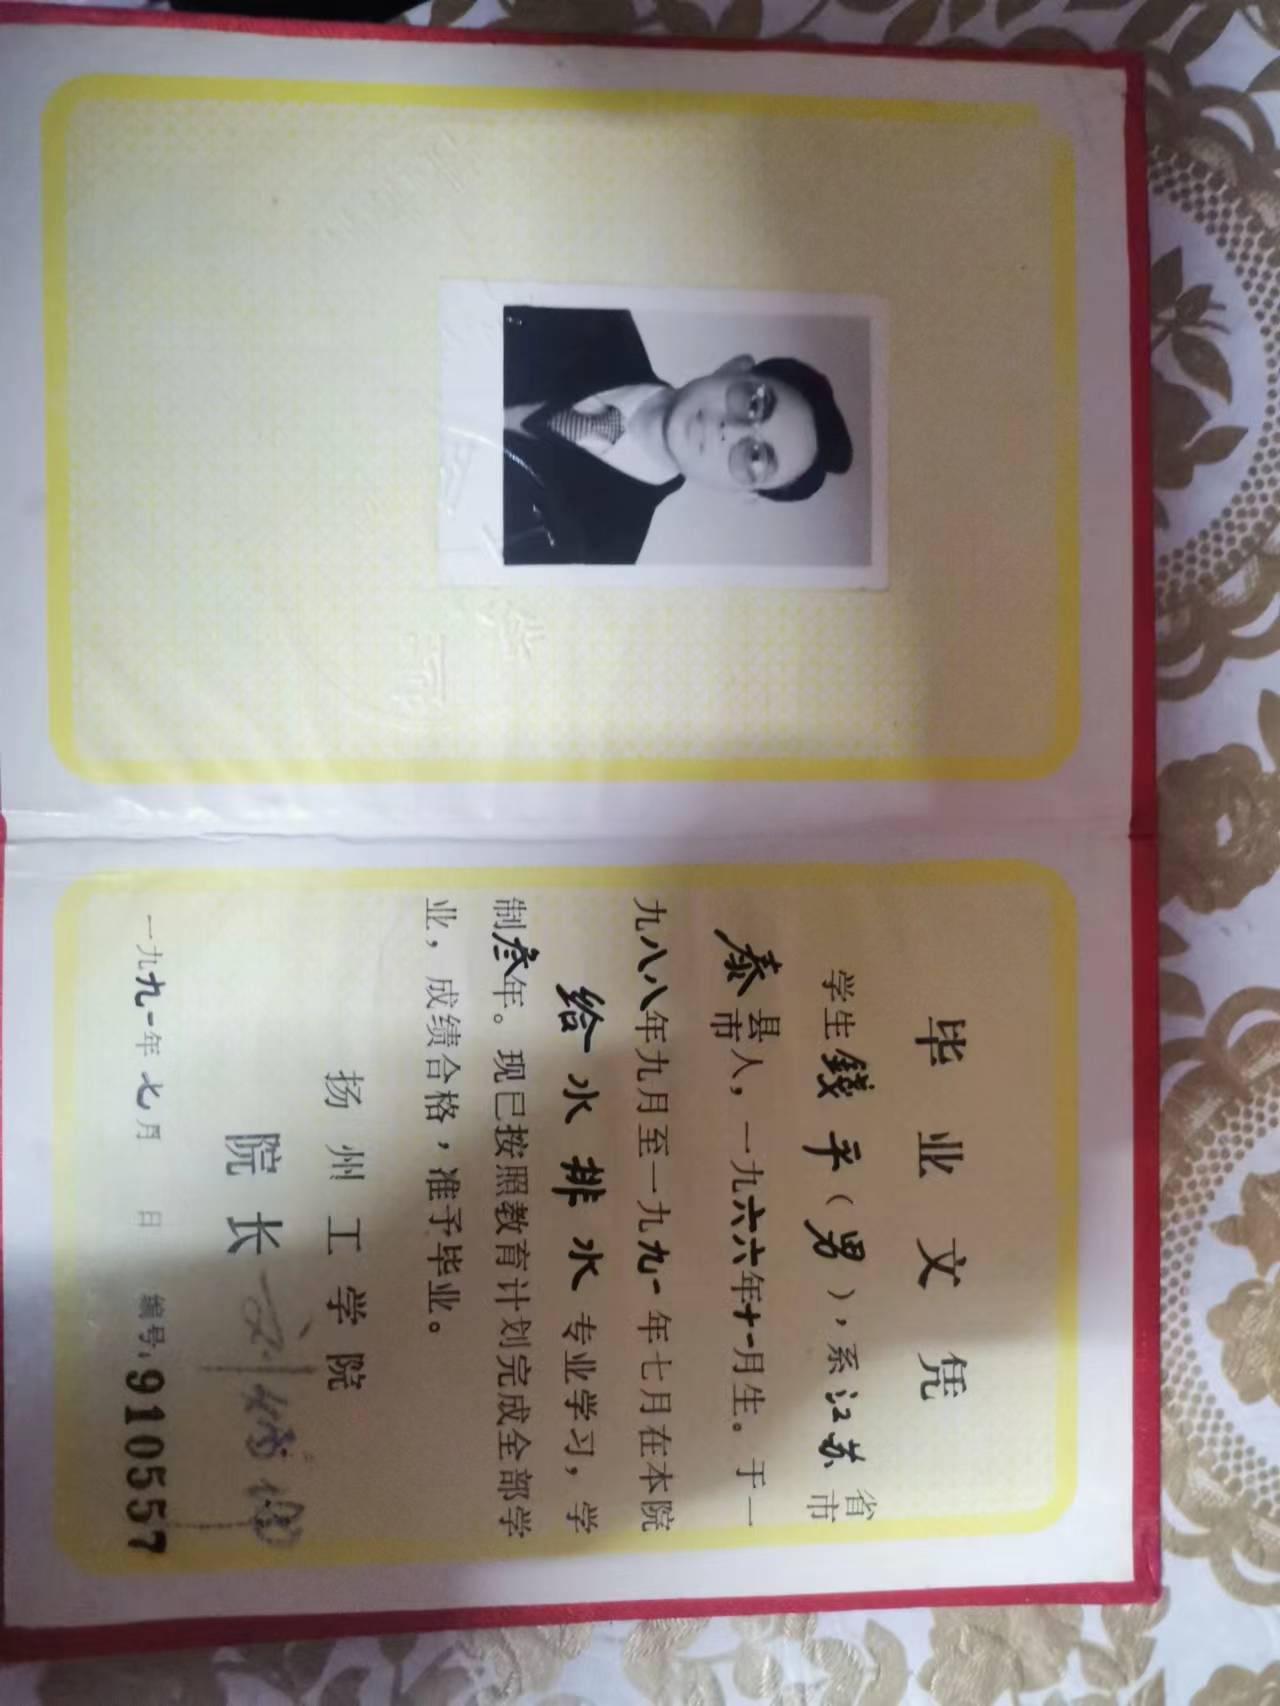 毕业文凭
学生錢平（男），系江苏省市
泰县市人，一九六六年十一月生。于一
九八八年九月至一九九一年七月在本院
给水排水专业学习，学
制叁年。现已按照教育计划完成全部学
业，成绩合格，准予毕业。
扬州工学院
院长
一九九一年七月 日 编号：910557